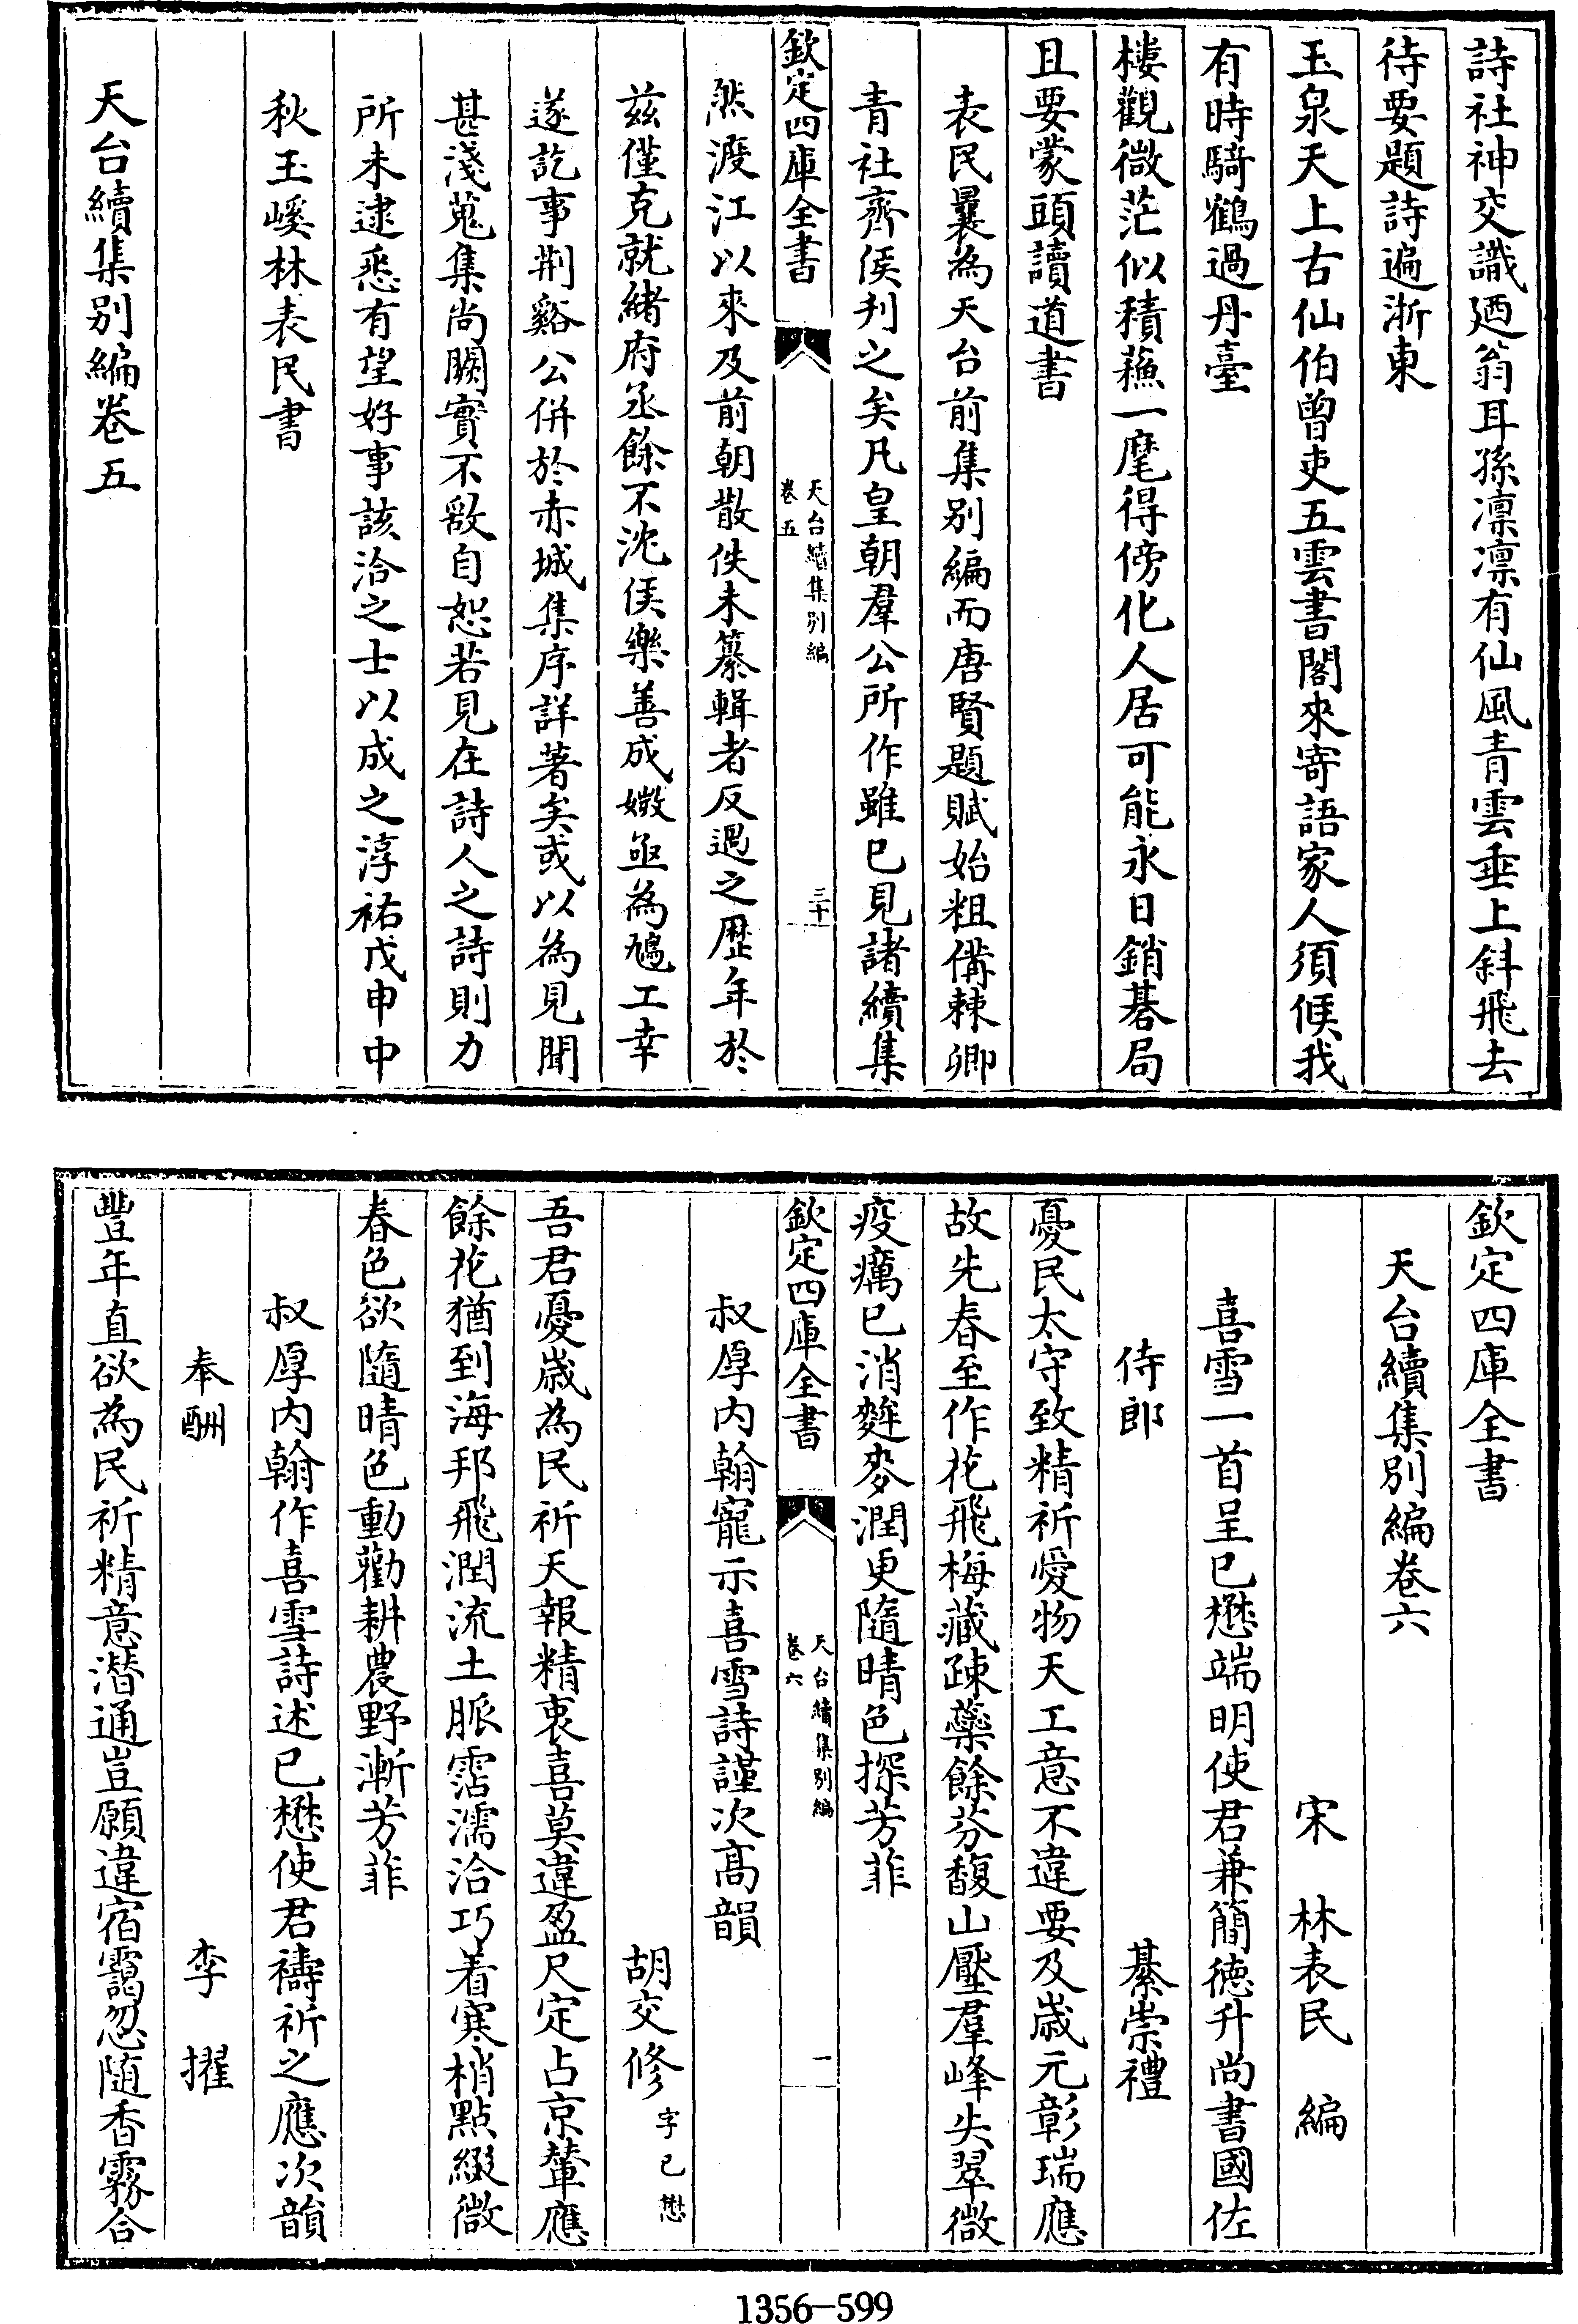 詩社神交識廼翁耳孫凛凛有仙風青雲垂上斜飛去
待要題詩遍浙東
玉泉天上古仙伯曾吏五雲書閣來寄語家人須候我
有時騎鶴過丹臺
樓觀微茫似積蘓一麾得傍化人居可能永日銷碁局
且要蒙頭讀道書
表民曩為天台前集别編而唐賢題賦始粗備棘卿
青社齊侯刋之矣凡皇朝羣公所作雖已見諸續集
欽定四庫全書
天台續集别編
卷五
三十
然渡江以來及前朝散佚未纂輯者反遇之歴年於
兹僅克就緒府丞餘不沈侯樂善成媺亟為鳩工幸
遂訖事荆谿公併於赤城集序詳著矣或以為見聞
甚淺蒐集尚闕實不敢自恕若見在詩人之詩則力
所未逮悉有望好事該洽之士以成之淳祐戊申中
秋玉峻林表民書
天台續集别編卷五
欽定四庫全書
天台續集别編卷六
宋 林表民 編
喜雪一首呈已懋端明使君兼簡德升尚書國佐
侍郎 綦崇禮
憂民太守致精祈愛物天工意不違要及歳元彰瑞應
故先春至作花飛梅藏疎蘂餘芬馥山壓羣峰失翠微
疫癘已消麰麥潤更隨晴色探芳菲
欽定四庫全書
天台續集别編
卷六
一
叔厚内翰寵示喜雪詩謹次髙韻
胡交修字已懋
吾君憂歳為民祈天報精衷喜莫違盈尺定占京輦應
餘花猶到海邦飛潤流土脈霑濡洽巧着寒梢點綴微
春色欲隨晴色動勸耕農野漸芳菲
叔厚内翰作喜雪詩述已懋使君禱祈之應次韻
奉酬 李擢
豐年直欲為民祈精意潛通豈願違宿靄忽随香霧合
1356-599